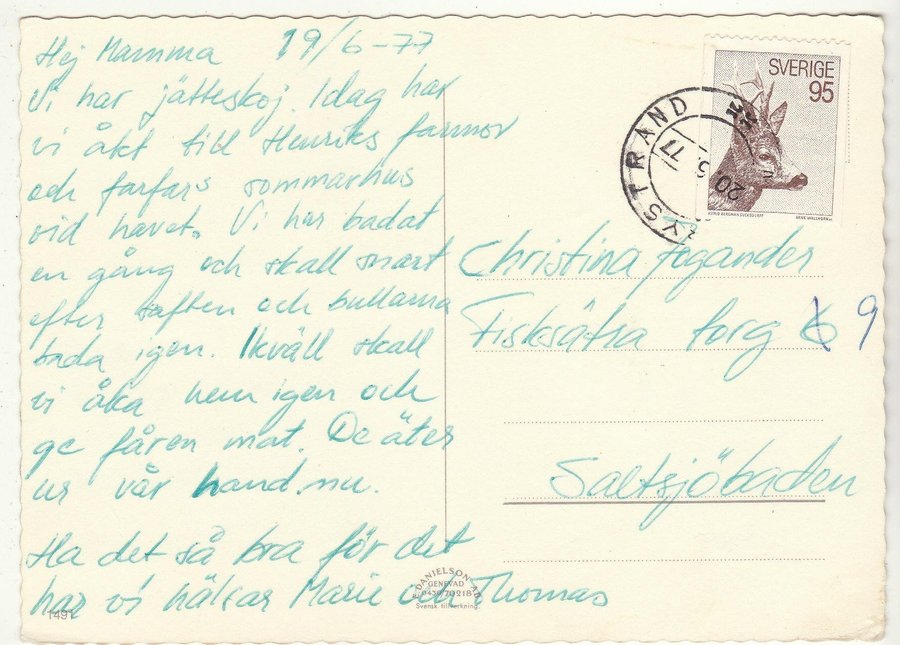 Hej Mamma 19/6-77
Vi har jätteskoj. Idag har
vi åkt till Henriks farmor
och farfars sommarhus
vid havet. Vi har badat
en gång och skall snart
efter saften och bullarna
bada igen. Ikväll skall
vi åka hem igen och
ge fåren mat. De äter
ur vår hand.nu.
Ha det så bra för det
har vi hälsar Marie och Thomas
1491
E. DANIELSON AB
GENEVAD
0430/70218
Svensk tillverkning.
SVERIGE
95
ASTRID BERGMAN SUCKSDORFF
ARNE WALLHORN sc
YSTRAND
20.6.77
Christina Fogander
Fisksätra torg 9
Saltsjöbaden